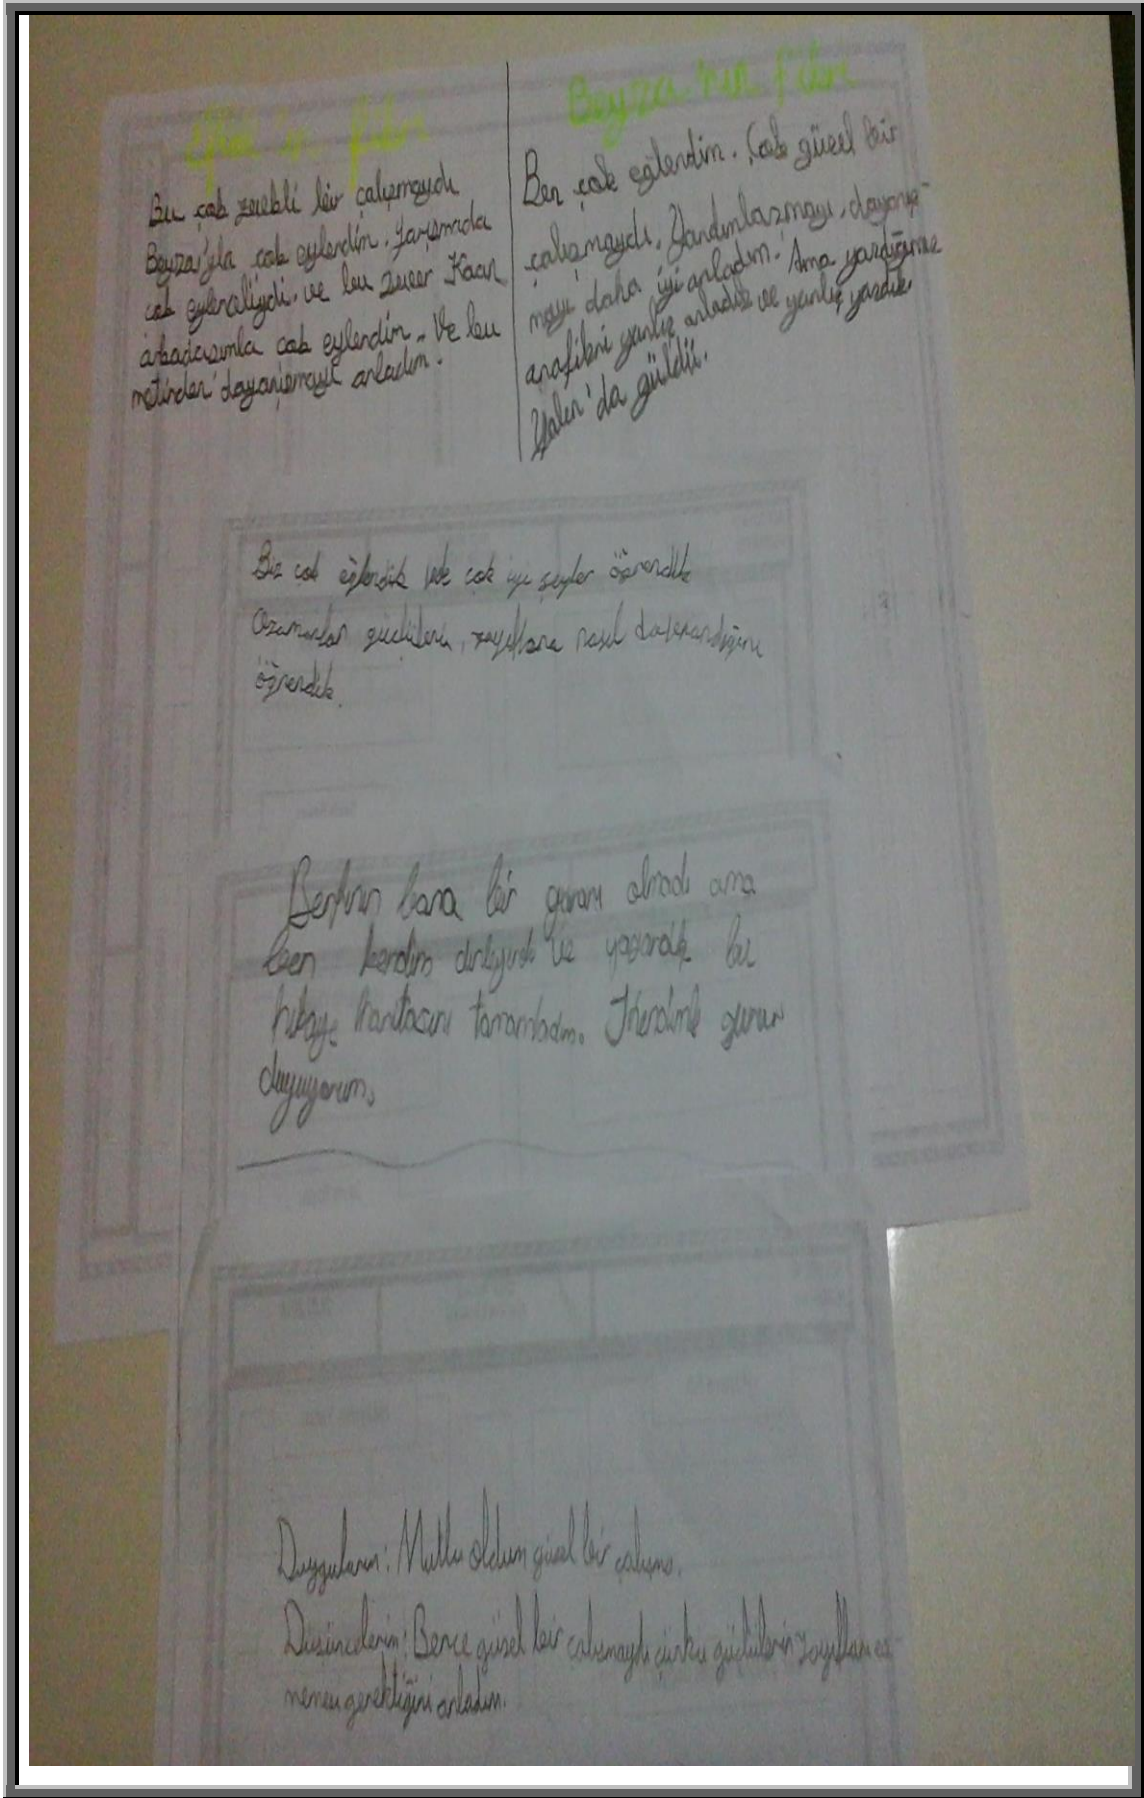 Efe'nin fikri
Bu çok zevkli bir çalışmaydı
Beyza'yla çok eylendim. Yarışmada
çok eylenceliydi. ve bu sefer Kaan
arkadaşımla çok eylendim. Ve bu
metinden dayanışmayı anladım.
Beyza'nın fikri
Ben çok eğlendim. Çok güzel bir
çalışmaydı. Yardımlaşmayı, dayanış-
mayı daha iyi anladım. Ama yazdığımız
anafikri yanlış anladık ve yanlış yazdık.
Yalın'da güldü.
Biz çok eğlendik hede çok iyi şeyler öğrendik
Ozamanlar güçlülerin, zayıflara nasıl davrandığını
öğrendik.
bana bir yararı olmadı ama
ben kendim dinleyerek ve yazarak bu
hikaye haritasını tamamladım. Kendimle gurur
duyuyorum.
Duygularım: Mutlu oldum güzel bir çalışma.
Düşüncelerim: Bence güsel bir çalışmaydı çünkü güçlülerin zayıfları ez-
memesi gerektiğini anladım.